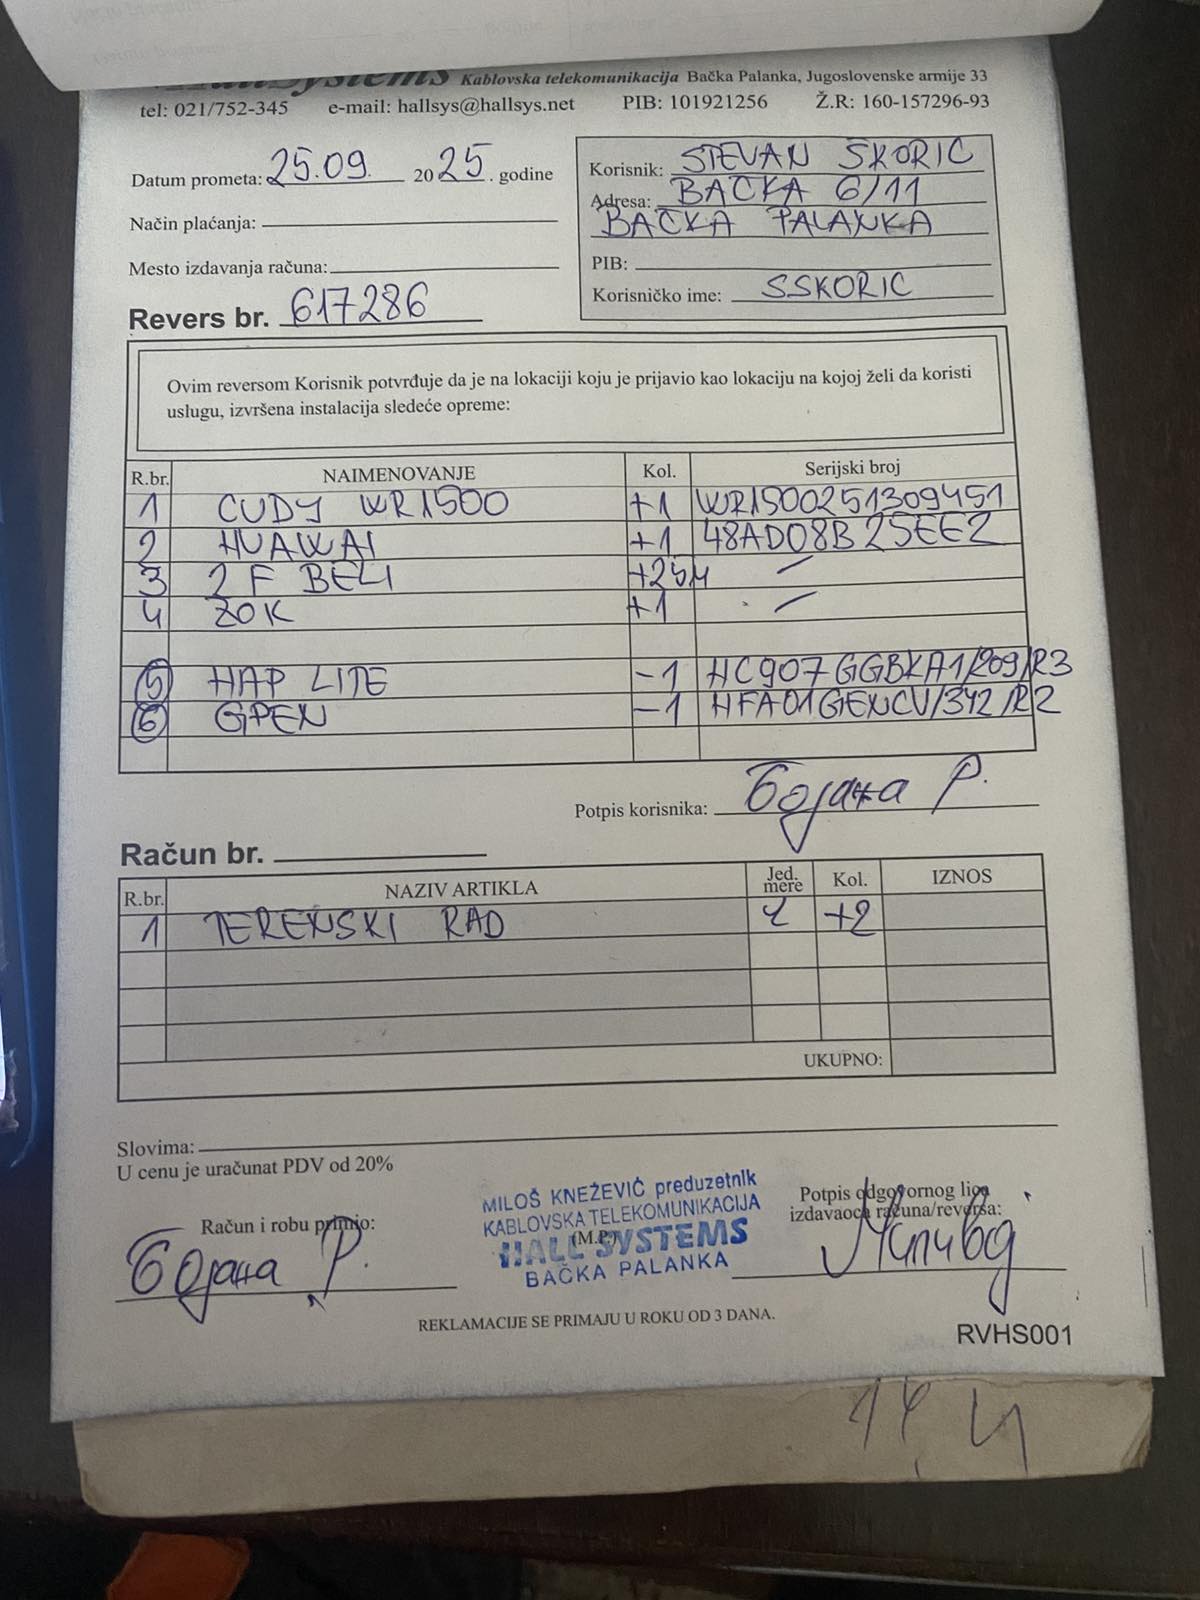 HallSystems Kablovska telekomunikacija Bačka Palanka, Jugoslovenske armije 33
tel: 021/752-345 e-mail: hallsys@hallsys.net PIB: 101921256 Ž.R: 160-157296-93
Datum prometa: 25.09. 2025. godine
Način plaćanja:
Mesto izdavanja računa:
Revers br. 617286
Korisnik: STEVAN ŠKORIĆ
Adresa: BAČKA 6/11
BAČKA PALANKA
PIB:
Korisničko ime: SSKORIC
Ovim reversom Korisnik potvrđuje da je na lokaciji koju je prijavio kao lokaciju na kojoj želi da koristi
uslugu, izvršena instalacija sledeće opreme:
R.br. NAIMENOVANJE Kol. Serijski broj
1 CUDY WR1500 +1 WR1500251309451
2 HUAWAI +1 48AD08B25EE2
3 2 F BELI +25M /
4 ZOK +1 /
5 HAP LITE -1 HC907GGBKA1/209/R3
6 GPEN -1 HFA01GENCV/342/R2
Potpis korisnika: Бојана Р.
Račun br.
R.br. NAZIV ARTIKLA Jed. mere Kol. IZNOS
1 TERENSKI RAD Č +2
UKUPNO:
Slovima:
U cenu je uračunat PDV od 20%
Račun i robu primio:
Бојана Р.
MILOŠ KNEŽEVIĆ preduzetnik
KABLOVSKA TELEKOMUNIKACIJA
(M.P.)
HALL SYSTEMS
BAČKA PALANKA
Potpis odgovornog lica
izdavaoca računa/reversa:
REKLAMACIJE SE PRIMAJU U ROKU OD 3 DANA.
RVHS001